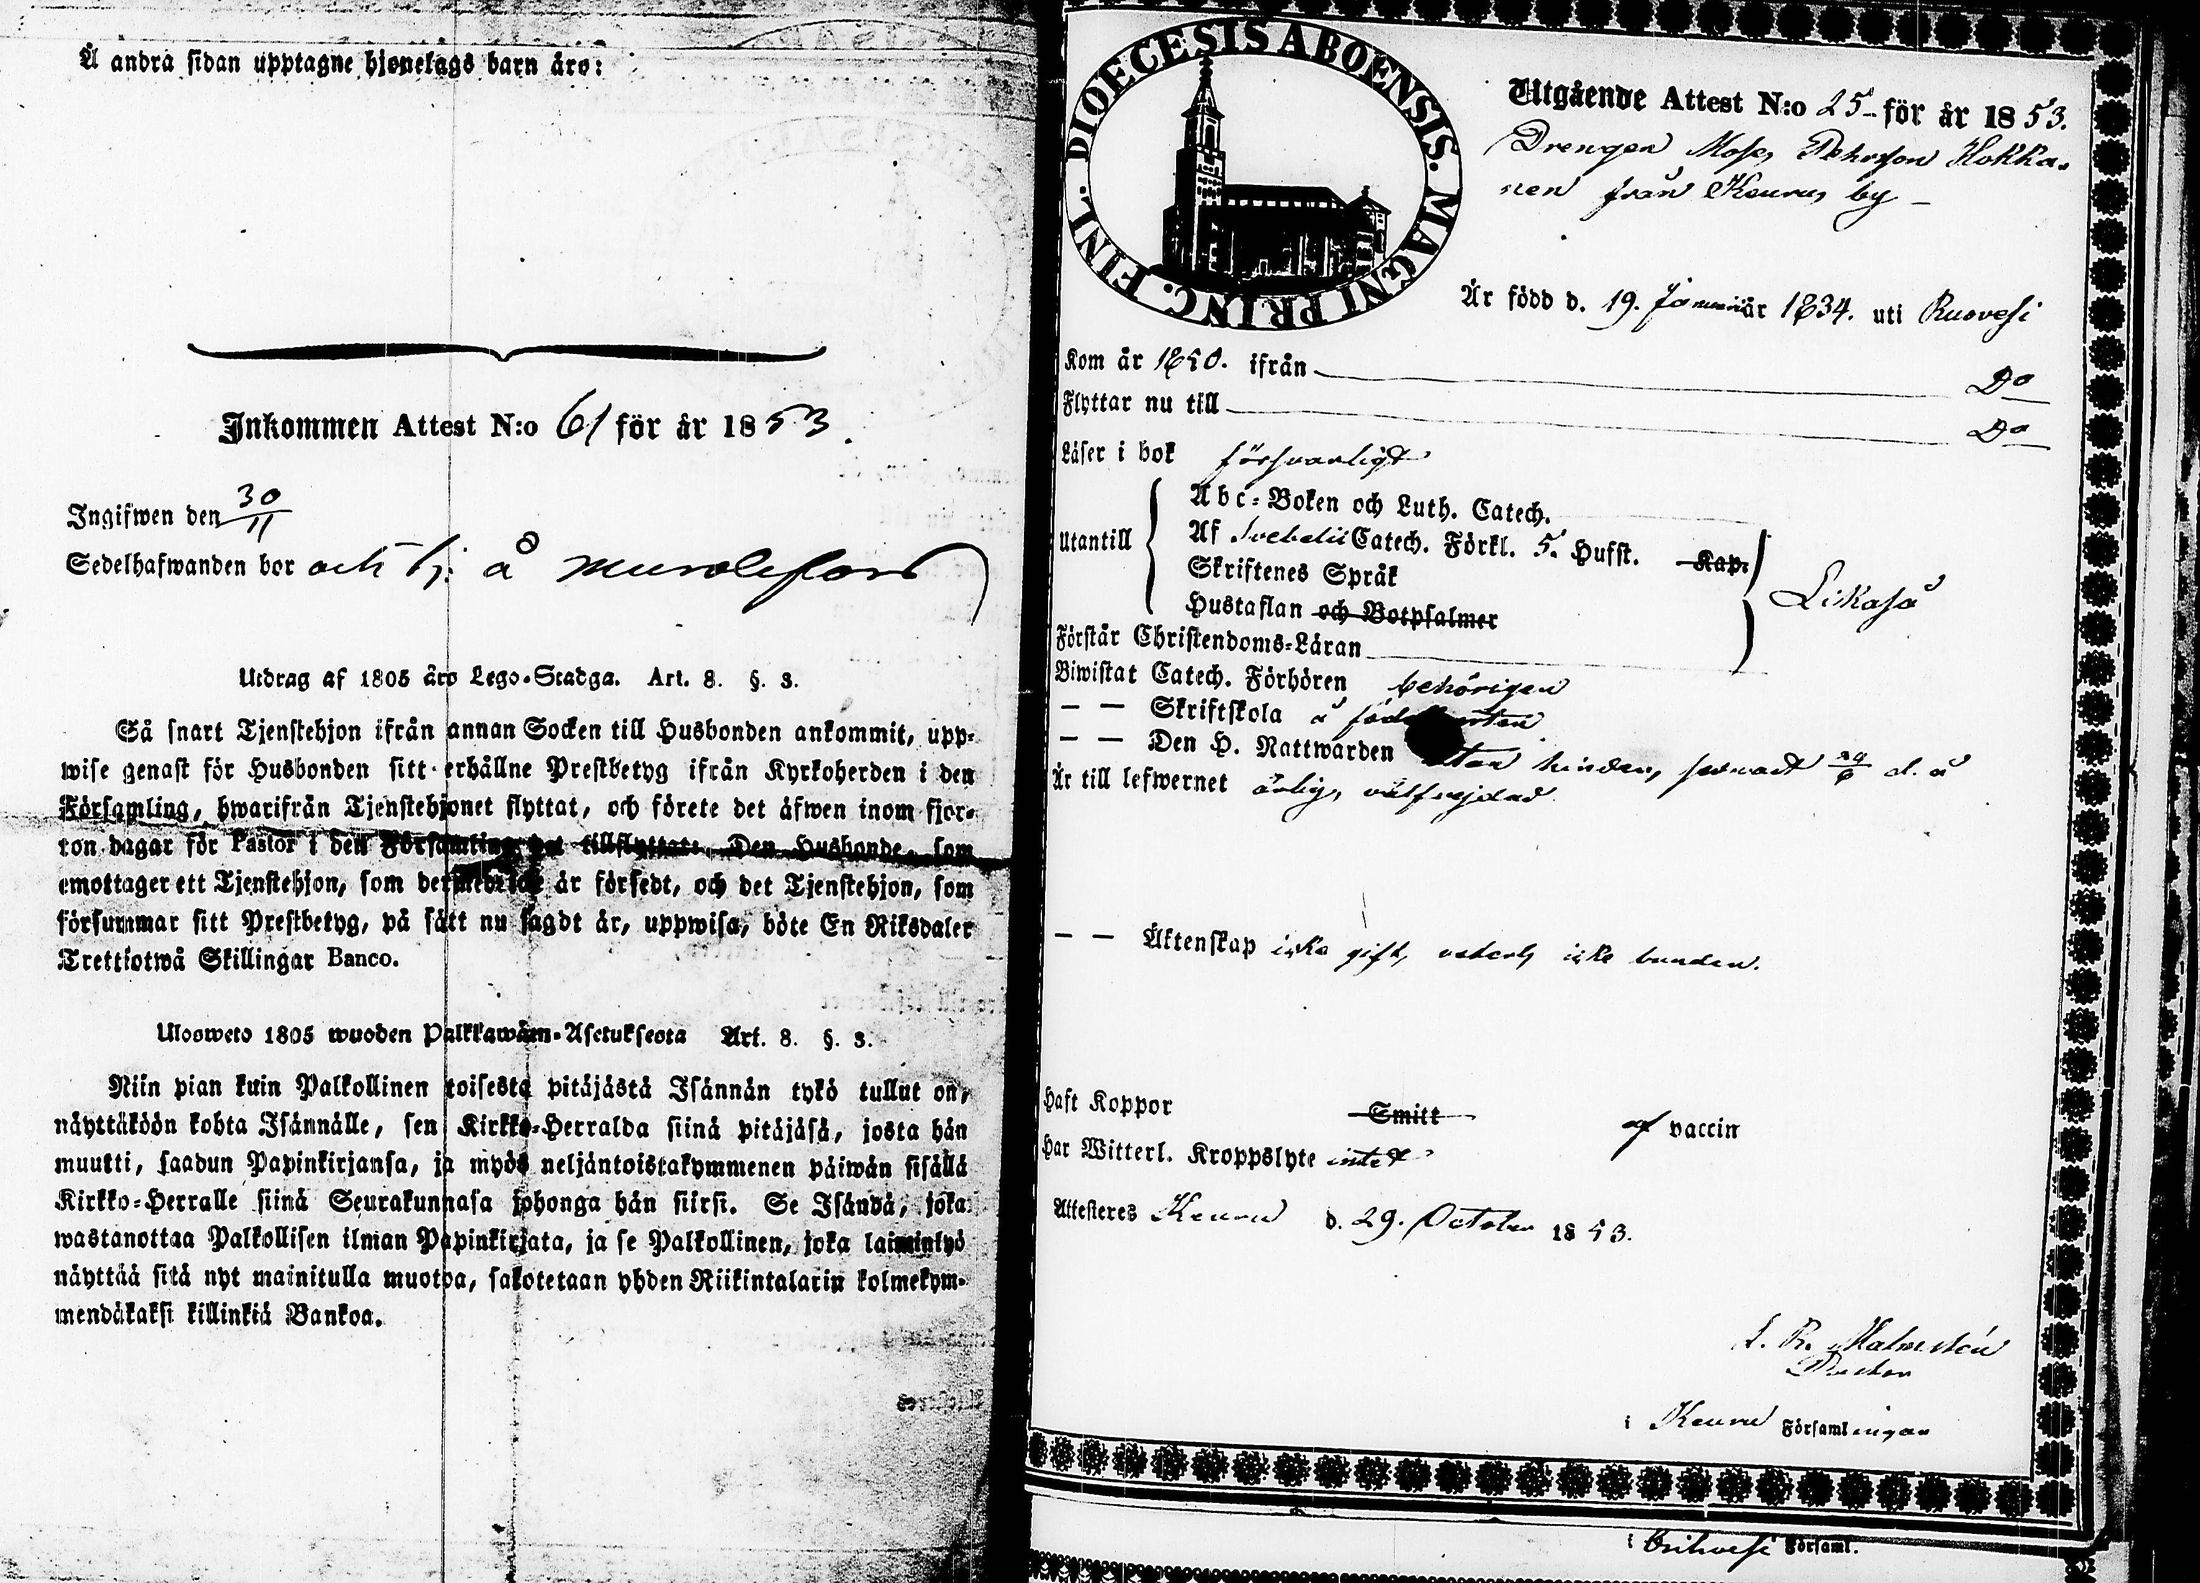 Å andra sidan upptagne hjonelags barn äro:
Inkommen Attest N:o 61 för år 1853.
Ingifwen den 30/11
Sedelhafwanden bor och tj. å
Utdrag af 1805 års Lego-Stadga. Art. 8. §. 3.
Så snart Tjenstehjon ifrån annan Socken till Husbonden ankommit, upp-
wise genast för Husbonden sitt erhållne Prestbetyg ifrån Kyrkoherden i den
Församling, hwarifrån Tjenstehjonet flyttat, och förete det äfwen inom fjor-
ton dagar för Pastor i den Församling det tillflyttat. Den Husbonde, som
emottager ett Tjenstehjon, som dermed icke är försedt, och det Tjenstehjon, som
försummar sitt Prestbetyg, på sätt nu sagdt är, uppwisa, böte En Riksdaler
Trettiotwå Skillingar Banco.
Ulosweto 1805 wuoden Palkkawäen-Asetuksesta Art. 8. §. 3.
Niin pian kuin Palkollinen toisesta pitäjästä Isännän tykö tullut on,
näyttäköön kohta Isännälle, sen Kirkko-Herralda siinä pitäjäsä, josta hän
muutti, saadun Papinkirjansa, ja myös neljäntoistakymmenen päiwän sisällä
Kirkko-Herralle siinä Seurakunnasa johonga hän siirsi. Se Isändä, joka
wastanottaa Palkollisen ilman Papinkirjata, ja se Palkollinen, joka laiminlyö
näyttää sitä nyt mainitulla muotoa, sakotetaan yhden Riikintalarin kolmekym-
mendäkaksi killinkiä Bankoa.
DIOECESIS ABOENSIS. MAGNI PRINC. FINL.
Utgående Attest N:o 25 för år 1853.
Drengen Moses Pehrsson Hokka-
nen från Keuru by
Är född d. 19. Januari år 1834. uti Ruovesi
Kom år 1850. ifrån Do
Flyttar nu till Do
Läser i bok försvarligt
Utantill
Abc-Boken och Luth. Catech.
Af Svebelii Catech. Förkl. 5. Hufst. Kap.
Skriftenes Språk
Hustaflan och Botpsalmer
Likaså
Förstår Christendoms-Läran
Biwistat Catech. Förhören behörigen
— — Skriftskola å
— — Den H. Nattwarden utan hinder, senast 29/6 d. å
Är till lefwernet ärlig, välfrejdad
— — Äktenskap icke gift, icke bunden.
Haft Koppor Smitt af vaccin
Har Witterl. Kroppslyte intet
Attesteres Keuru d. 29. October 1853.
Malmstén
Pastor
i Keuru Församlingar
i Orihvesi Församl.